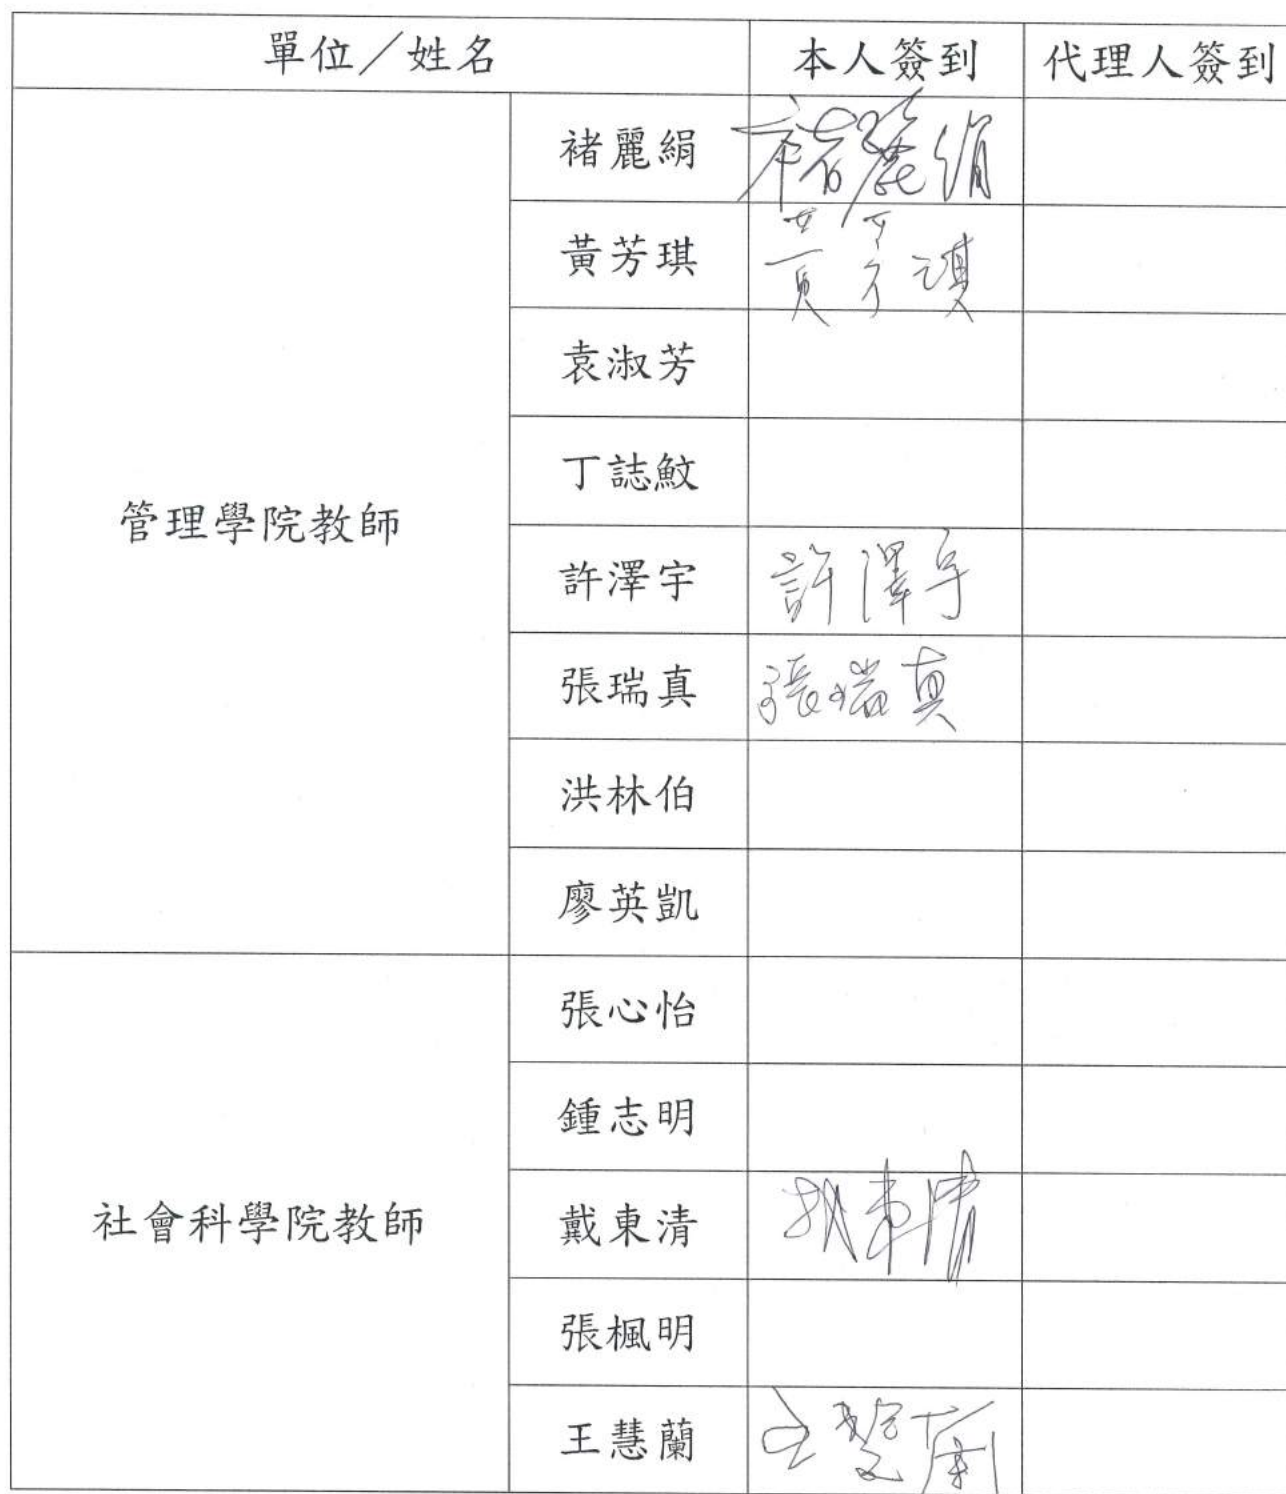 單位／姓名 本人簽到 代理人簽到
管理學院教師
褚麗絹 褚麗絹
黃芳琪 黃芳琪
袁淑芳
丁誌魰
許澤宇 許澤宇
張瑞真 張瑞真
洪林伯
廖英凱
社會科學院教師
張心怡
鍾志明
戴東清 戴東清
張楓明
王慧蘭 王慧蘭